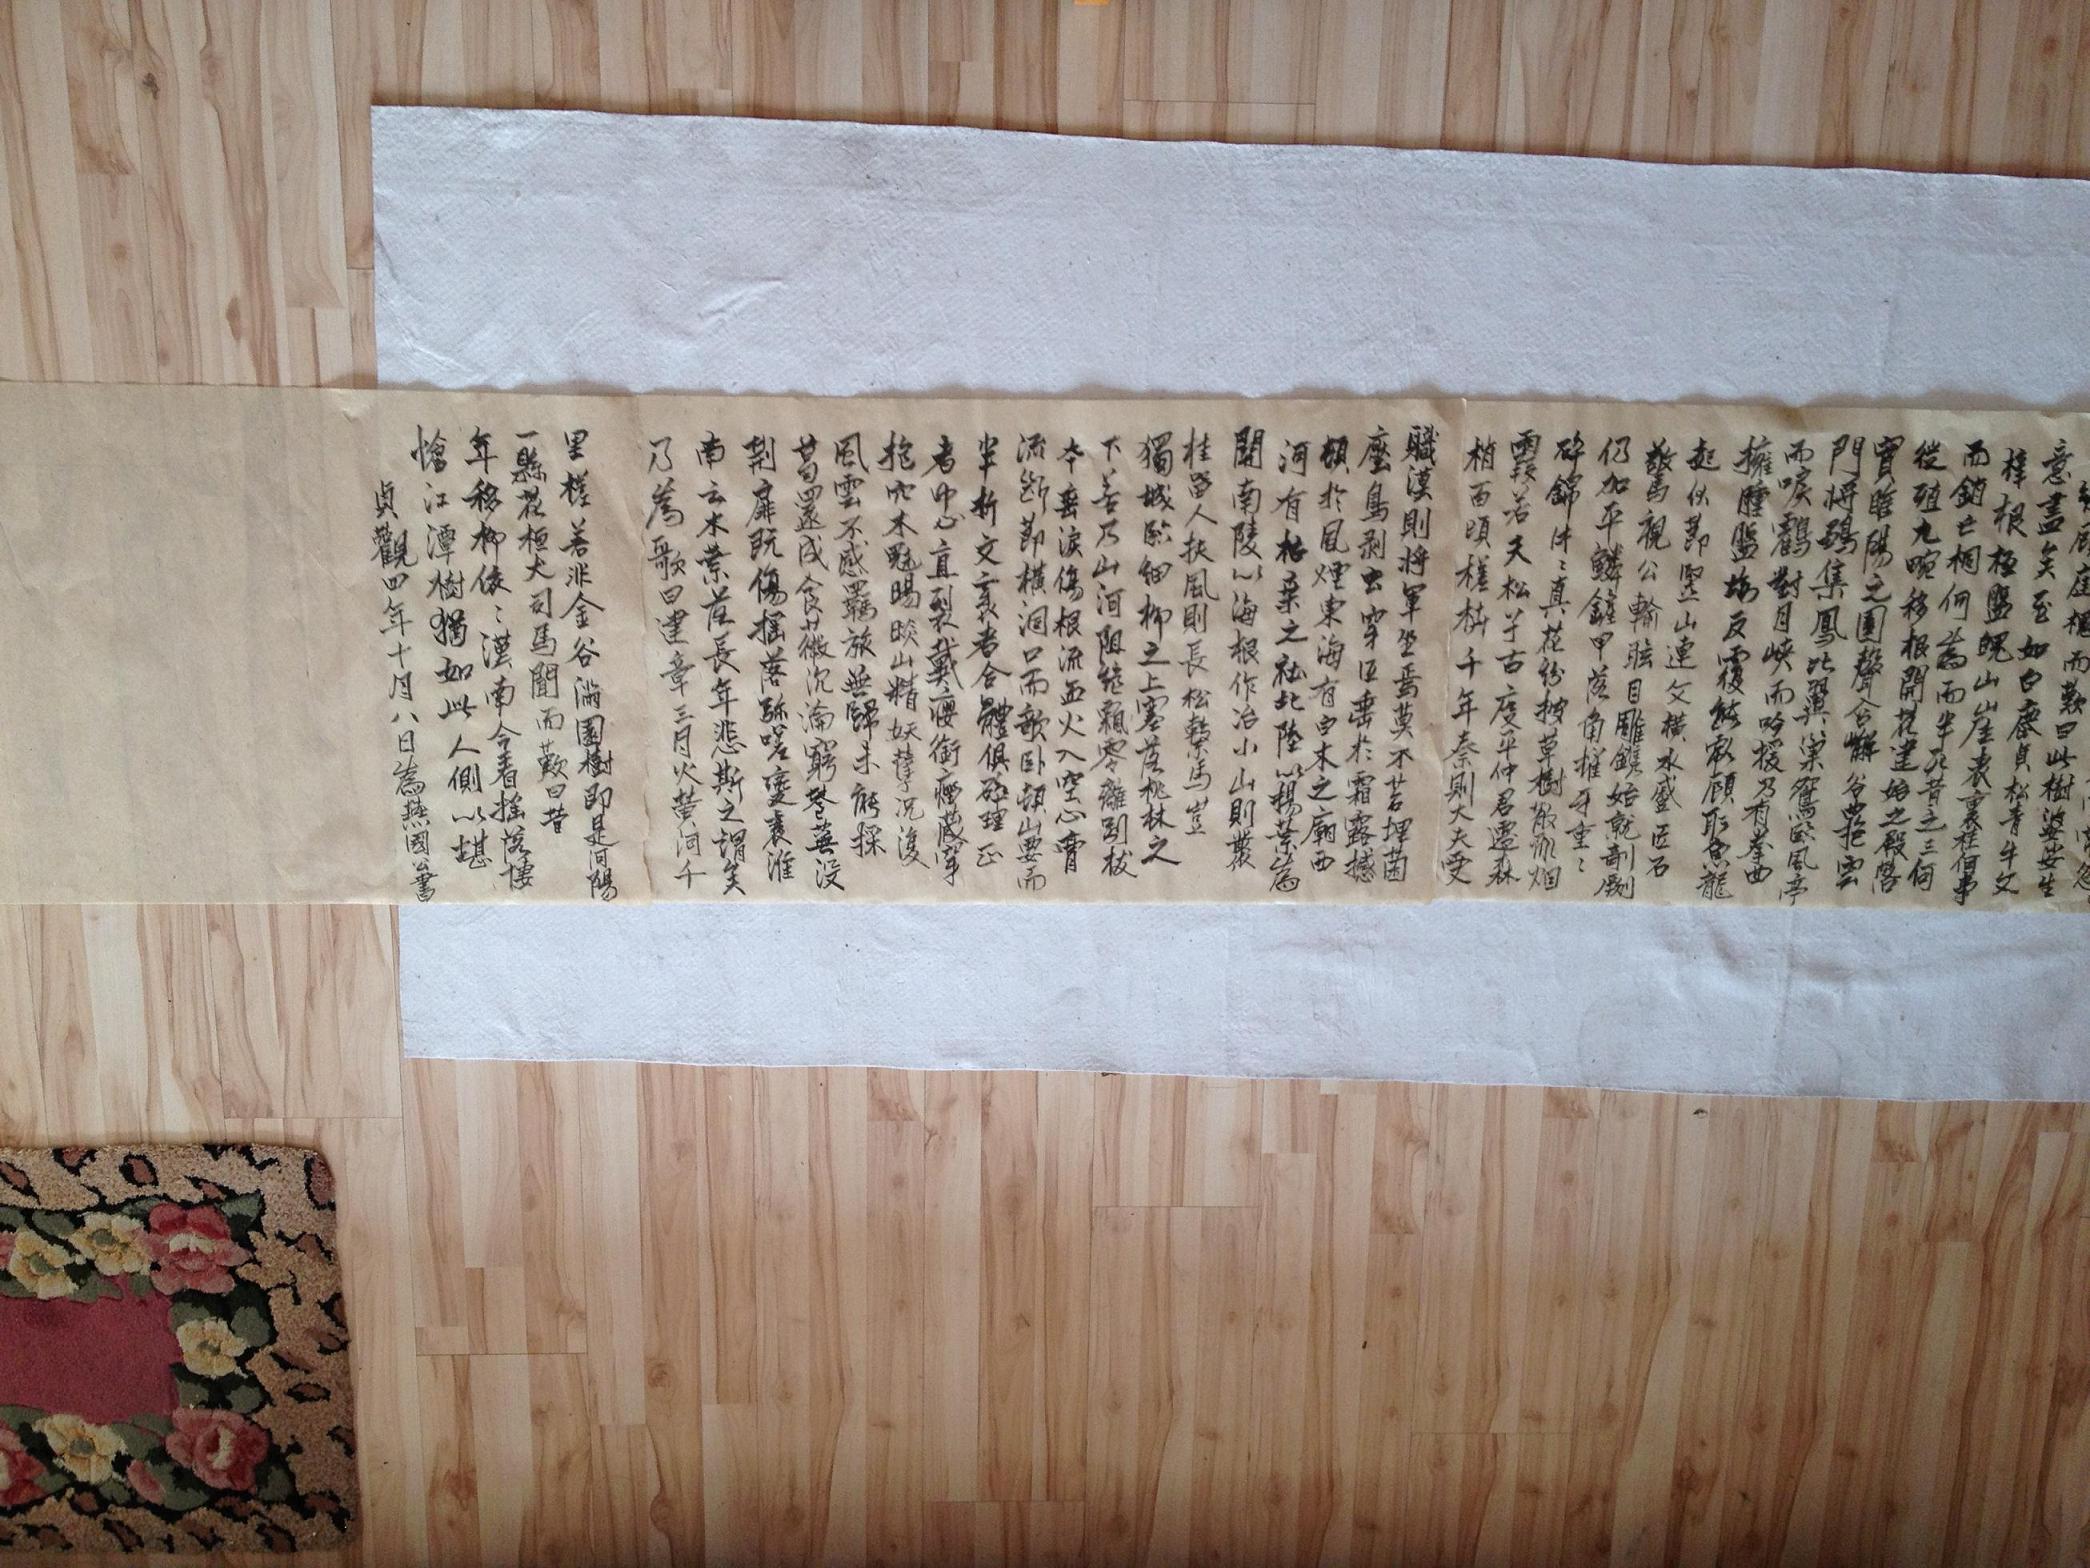 顧庭槐而歎曰此樹婆娑生
意盡矣至如白鹿貞松青牛文
梓根柢盤魄山崖表裏桂何事
而銷亡桐何為而半死昔之三何
從殖九畹移根開花建始之殿落
實睢陽之園聲含嶰谷曲抱雲
門將鶵集鳳比翼巢鴛臨風亭
而唳鶴對月峽而吟猨乃有拳曲
擁腫盤坳反覆熊彪顧盻魚龍
起伏節竪山連文橫水蹙匠石
驚視公輸眩目雕鐫始就剞劂
仍加平鱗鏟甲落角摧牙重〻
碎錦片〻真花紛披草樹散亂烟
霞若夫松子古度平仲君遷森
梢百頃槎枿千年秦則大夫受
職漢則將軍坐焉莫不苔埋菌
壓鳥剥虫穿垂於霜露撼
頓於風煙東海有白木之廟西
河有枯桑之社北陸以楊葉為
關南陵以梅根作冶小山則叢
桂留人扶風則長松繫馬豈
獨城臨細柳之上塞落桃林之
下若乃山河阻絶飄零離別拔
本垂淚傷根流血火入空心膏
流斷節橫洞口而欹卧頓山要而
半折文衺者合體俱碎理正
者中心直裂戴癭銜瘤藏穿
抱穴木魅睗睒山精妖孽況復
風雲不感羈旅無歸未能採
葛還成食薇沉淪窮巷蕪没
荆扉既傷搖落弥嗟變衰淮
南云木葉落長年悲斯之謂矣
乃為歌曰建章三月火黃河千
里槎若非金谷滿園樹即是河陽
一縣花桓大司馬聞而歎曰昔
年移柳依〻漢南今看搖落悽
愴江潭樹猶如此人何以堪
貞觀四年十月八日為燕國公書